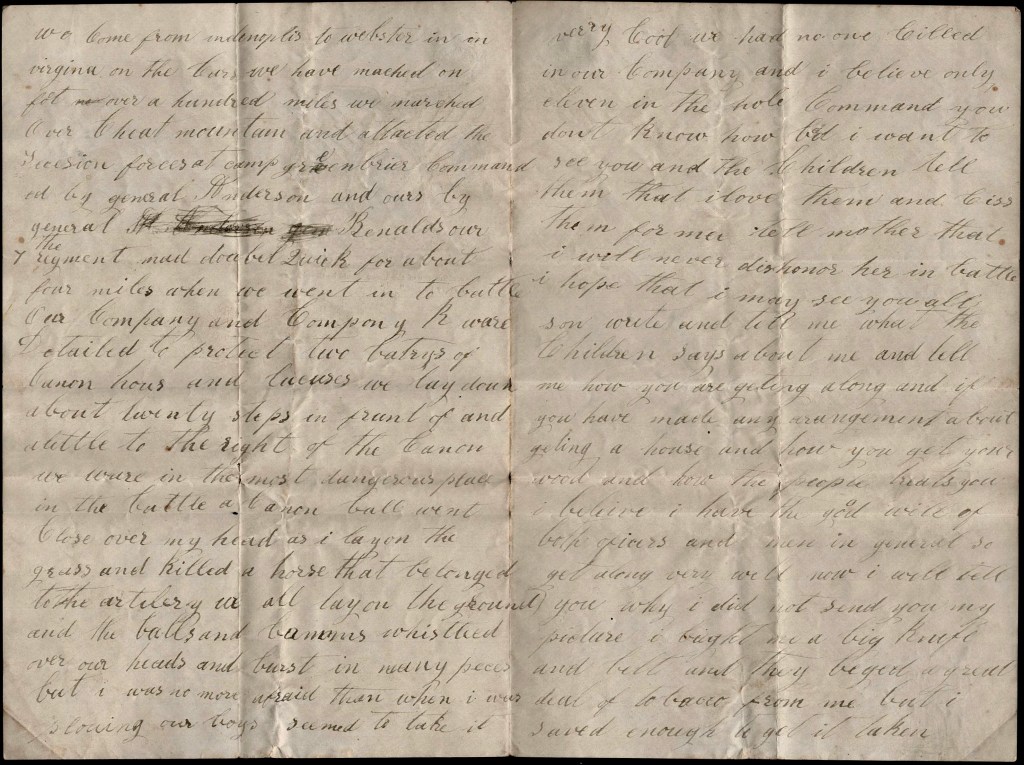 we Come from indenoplis to webster in on
virgina on the Cars we have mached on
fot over a hundred miles we marched
Over Cheat mountain and attacted the
Secesion forces at camp greenbrier Command
ed by general Anderson and ours by
general Renalds our
the
7 rigment mad doubel Quick for about
four miles when we went in to battle
Our Company and Compony K ware
Detailed to protect two batrys of
Canon hous and we lay down
about twenty steps in frunt of and
alittle to the right of the Canon
we ware in the most dangerous place
in the battle a Canon ball went
Close over my head as i lay on the
grass and killed a horse that belonged
to the artilery we all lay on the ground
and the balls and whistled
over our heads and burst in many peces
but i was no more afraid than when i was
our boys seemed to take it
verry Cool we had no one Cilled
in our Company and i believe only
eleven in the hole Command you
dont know how bad i want to
see you and the Children tell
them that i love them and Ciss
them for me tell mother that
i will never dishonor her in battle
i hope that i may see you all
son write and tell me what the
Children says about me and tell
me how you are geting along and if
you have made any arangement about
geting a house and how you get your
wood and how the people treats you
i belive i have the good will of
both oficers and men in general so
get along very well now i will tell
you why i did not send you my
picture i bught me a big knife
and belt and they beged a great
deal of tobacco from me but i
saved enough to get it taken